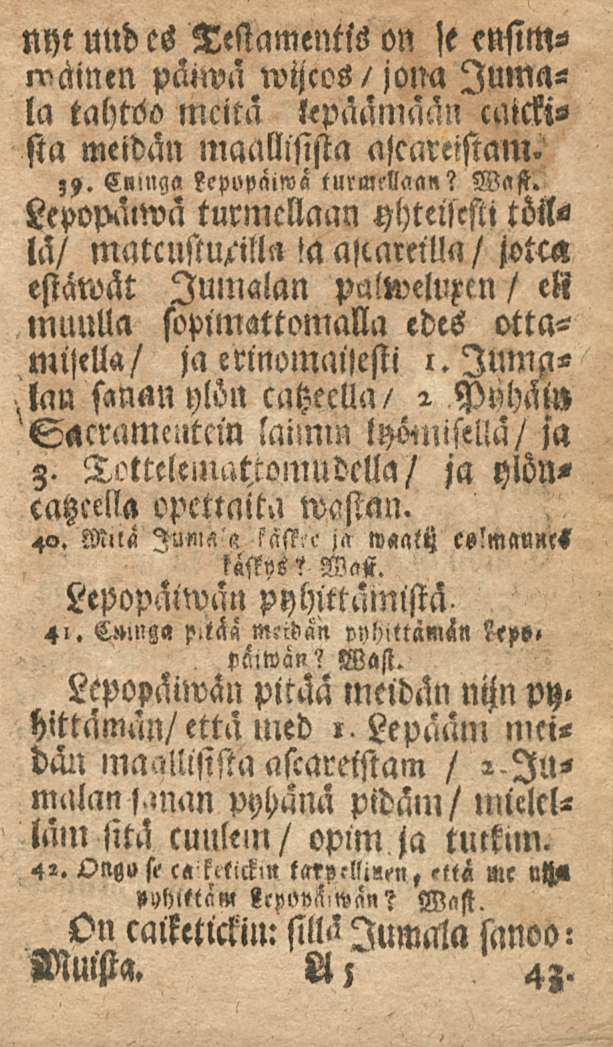 nyt uudes Testamentis on se ensim⸗
mäinen päiwä wijcos / jona Juma⸗
la tahtoo meitä lepäämään caicki⸗
sta meidän maallisista ascareistam.
39. Cuinga Lepopäiwä turmellaan? Wast.
Lepopäiwä turmellaan yhteisesti töil⸗
lä/ matcustuxilla ja ascareilla / jotca
estäwät Jumalan palweluxen / eli
muulla sopimattomalla edes otta⸗
misella/ ja erinomaisesti 1. Juma⸗
lan sanan ylön catzeella / 2 Pyhäin
Sacramentein laimin lyömisellä/ ja
3. Tottelemattomudella/ ja ylön⸗
catzeella opettaita wastan.
40. Mitä Jumala käskee ja waatij colmannes
käskys? Wast.
Lepopäiwän pyhittämistä.
41. Cuinga pitää meidän pyhittämän Lepo⸗
päiwän? Wast.
Lepopäiwän pitää meidän nijn py⸗
hittämän/ että med 1. Lepääm mei⸗
dän maallisista ascareistam / 2. Ju⸗
malan sanan pyhänä pidäm / mielel⸗
läm sitä cuulem / opim ja tutkim.
42. Ongo se caiketickin tarpellinen, että me nijn
pyhittäm Lepopäiwän? Wast.
On caiketickin: sillä Jumala sanoo:
Muista. A 5 43.